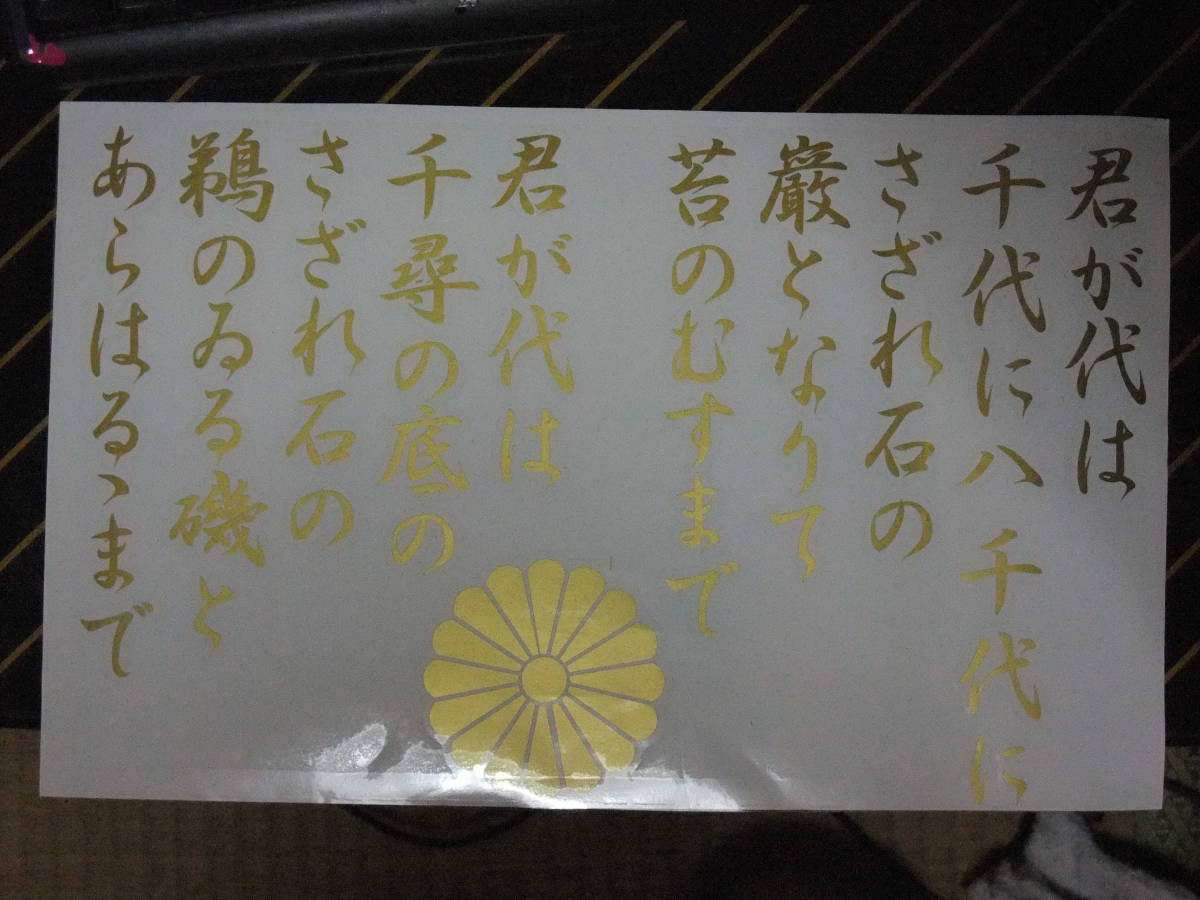 君が代は
千代に八千代に
さざれ石の
巌となりて
苔のむすまで
君が代は
千尋の底の
さざれ石の
鵜のゐる磯と
あらはるゝまで